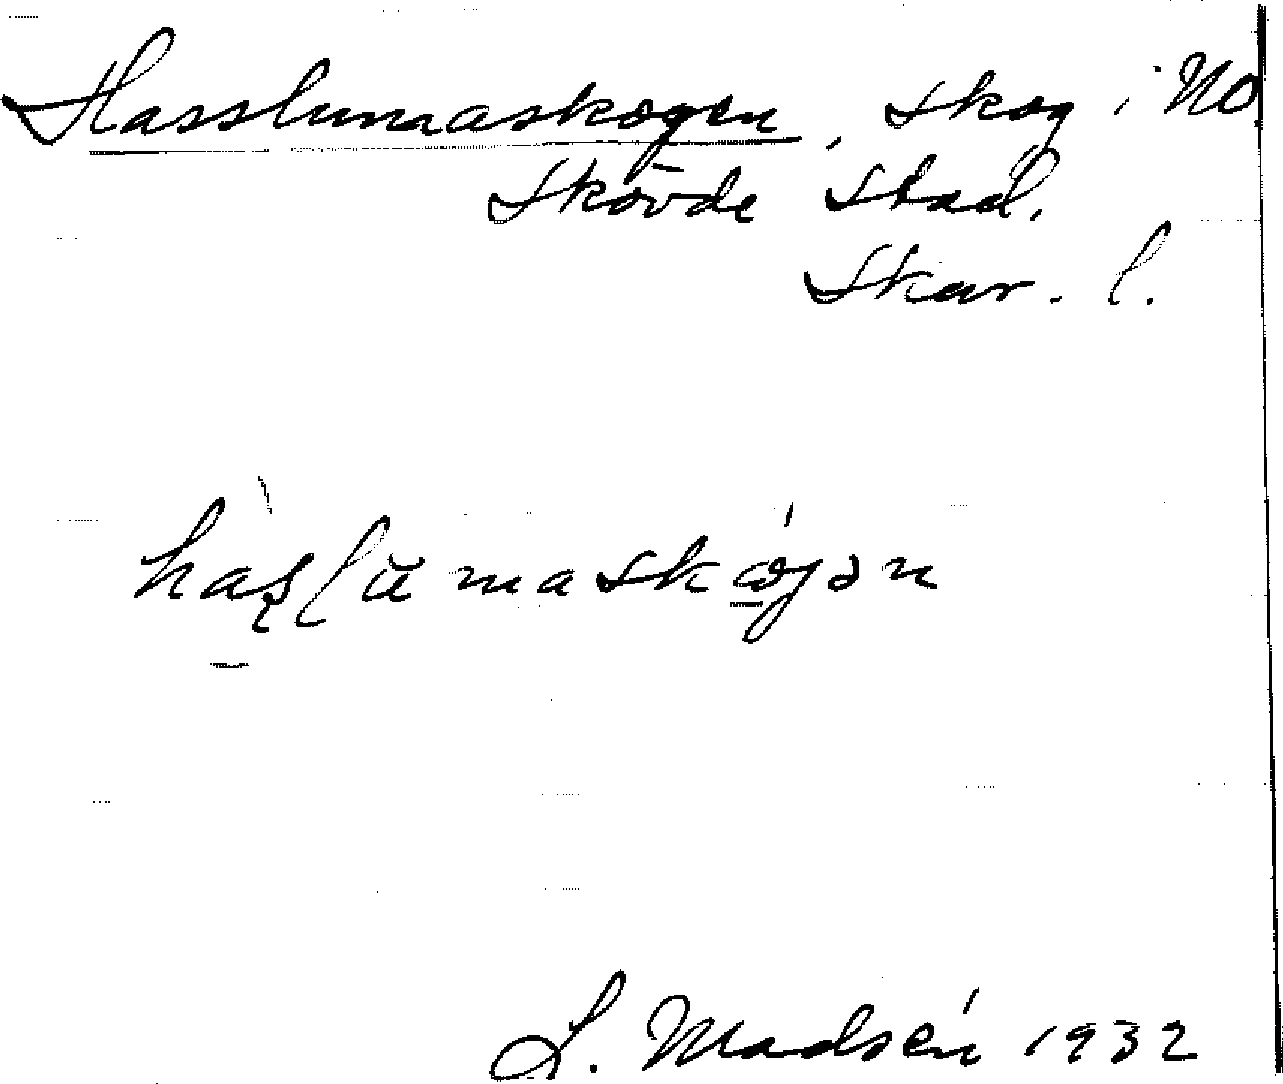 Hasslumaskogen, skog i NO.
Skövde stad.
Skar. l.
hàʂlŭmaskǿjən
L. Madsén 1932